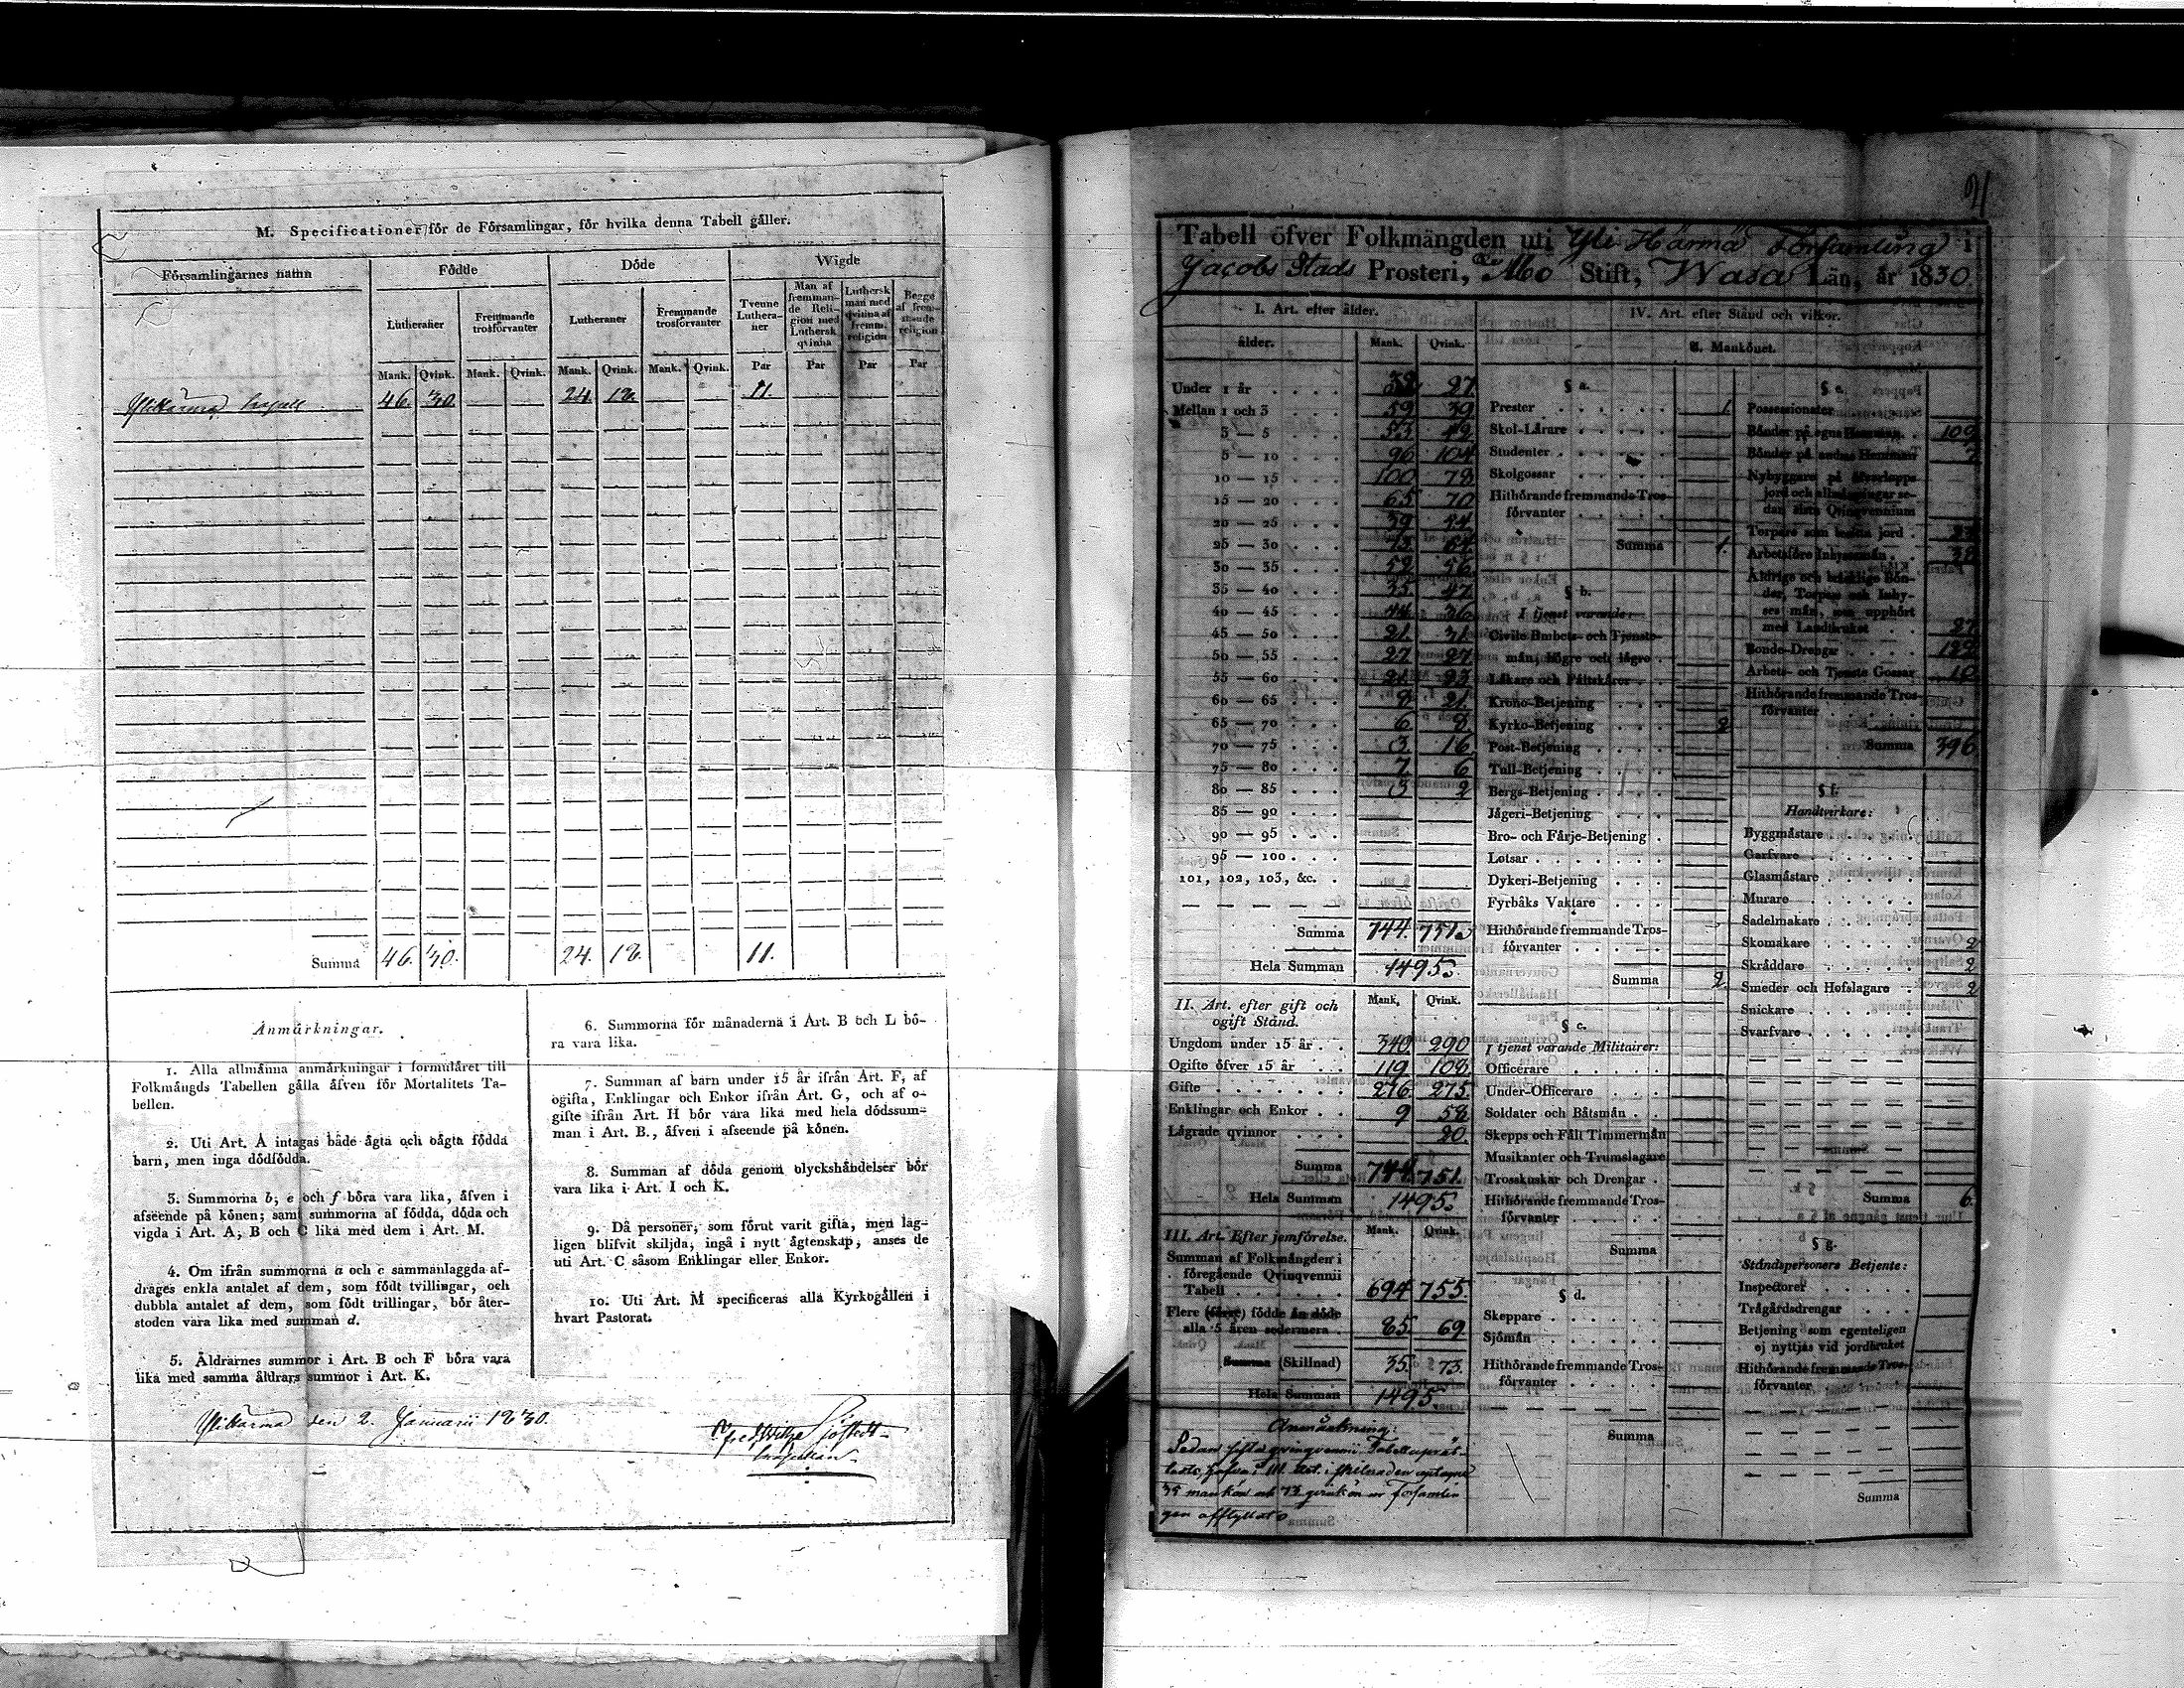 M. Specificationer för de Församlingar, för hvilka denna Tabell gäller.
Församlingarnes namn
Födde
Döde
Wigde
Lutheraner
Fremmande trosförvanter
Lutheraner
Fremmande trosförvanter
Tvenne Lutheraner
Man af fremmande Religion med Luthersk qvinna
Luthersk man med qvinna af fremm. religion
Begge af fremmande religion
Mank. Qvink. Mank. Qvink. Mank. Qvink. Mank. Qvink. Par Par Par Par
46. 30. 24. 18. 11.
Summa 46. 30. 24. 18. 11.
Anmärkningar.
1. Alla allmänna anmärkningar i formuläret till
Folkmängds Tabellen gälla äfven för Mortalitets Ta-
bellen.
2. Uti Art. A intagas både ägta och oägta födda
barn, men inga dödfödda.
3. Summorna b, e och f böra vara lika, äfven i
afseende på könen; samt summorna af födda, döda och
vigda i Art. A, B och C lika med dem i Art. M.
4. Om ifrån summorna a och c sammanlaggda af-
drages enkla antalet af dem, som födt tvillingar, och
dubbla antalet af dem, som födt trillingar, bör åter-
stoden vara lika med summan d.
5. Äldrarnes summor i Art. B och F böra vara
lika med samma åldrars summor i Art. K.
6. Summorna för månaderna i Art. B och L bö-
ra vara lika.
7. Summan af barn under 15 år ifrån Art. F, af
ogifta, Enklingar och Enkor ifrån Art. G, och af o-
gifte ifrån Art. H bör vara lika med hela dödssum-
man i Art. B., äfven i afseende på könen.
8. Summan af döda genom olyckshändelser bör
vara lika i Art. I och K.
9. Då personer, som förut varit gifta, men lag-
ligen blifvit skiljda, ingå i nytt ägtenskap, anses de
uti Art. C såsom Enklingar eller Enkor.
10. Uti Art. M specificeras alla Kyrkogällen i
hvart Pastorat.
den 2. Januarii 1830.
Tabell öfver Folkmängden uti Yli Härmä Församling i
Jacobs Stads Prosteri, Åbo Stift, Wasa Län, år 1830.
I. Art. efter ålder.
ålder. Mank. Qvink.
Under 1 år 32 27
Mellan 1 och 3 59 39
3 — 5 53 42
5 — 10 96 104
10 — 15 100 78
15 — 20 65 70
20 — 25 39
25 — 30
30 — 35 52 56
35 — 40 35 47
40 — 45 44 36
45 — 50 21 31
50 — 55 27 27
55 — 60 21 23
60 — 65 8 21
65 — 70 6 8
70 — 75 3 16
75 — 80 7 6
80 — 85 3 2
85 — 90
90 — 95
95 — 100
101, 102, 103, &c.
Summa 744. 751.
Hela Summan 1495.
II. Art. efter gift och
ogift Stånd.
Mank. Qvink.
Ungdom under 15 år 340. 290
Ogifte öfver 15 år 119 108
Gifte 276 275.
Enklingar och Enkor 9 58
Lägrade qvinnor 20.
Summa 744. 751.
Hela Summan 1495.
III. Art. Efter jemförelse. Mank. Qvink.
Summan af Folkmängden i
föregående Qvinqvennii
Tabell 694 755.
Flere (färre) födde än döde
alla 5 åren sedermera 85. 69.
Summa (Skillnad) 35. 73.
Hela Summan 1495
Anmärkning.
35 mankön och 73 qvinkön ur Församlin
gen afflyttat
IV. Art. efter Stånd och vilkor.
Mankönet.
§ a.
Prester 1.
Skol-Lärare
Studenter
Skolgossar
Hithörande fremmande Tros-
förvanter
Summa 1.
§ b.
I tjenst varande:
Civile Embets- och Tjenste-
män, högre och lägre
Läkare och Fältskärer
Krono-Betjening
Kyrko-Betjening 2
Post-Betjening
Tull-Betjening
Bergs-Betjening
Jägeri-Betjening
Bro- och Färje-Betjening
Lotsar
Dykeri-Betjening
Fyrbåks Vaktare
Hithörande fremmande Tros-
förvanter
Summa 2.
§ c.
I tjenst varande Militairer:
Officerare
Under-Officerare
Soldater och Båtsmän
Skepps och Fält Timmermän
Musikanter och Trumslagare
Trosskuskar och Drengar
Hithörande fremmande Tros-
förvanter
Summa
§ d.
Skeppare
Sjömän
Hithörande fremmande Tros-
förvanter
Summa
§ e.
Possessionater
Bönder på egna Hemman 109
Bönder på andras Hemman 7
Nybyggare på öfverlopps
jord och allmänningar se-
dan sista Qvinqvennium
Torpare som besitta jord
Arbetsföre Inhysesmän 38
Åldrige och bräcklige Bön-
der, Torpare och Inhy-
ses män, som upphört
med Landtbruket 27
Bonde-Drengar
Arbets- och Tjenste Gossar
Hithörande fremmande Tros-
förvanter
Summa 396
§ f.
Handtverkare:
Byggmästare
Garfvare
Glasmästare
Murare
Sadelmakare
Skomakare 2
Skräddare 2
Smeder och Hofslagare 2
Snickare
Svarfvare
Summa 6.
§ g.
Ståndspersoners Betjente:
Inspectorer
Trägårdsdrengar
Betjening som egenteligen
ej nyttjas vid jordbruket
Hithörande fremmande Tros-
förvanter
Summa